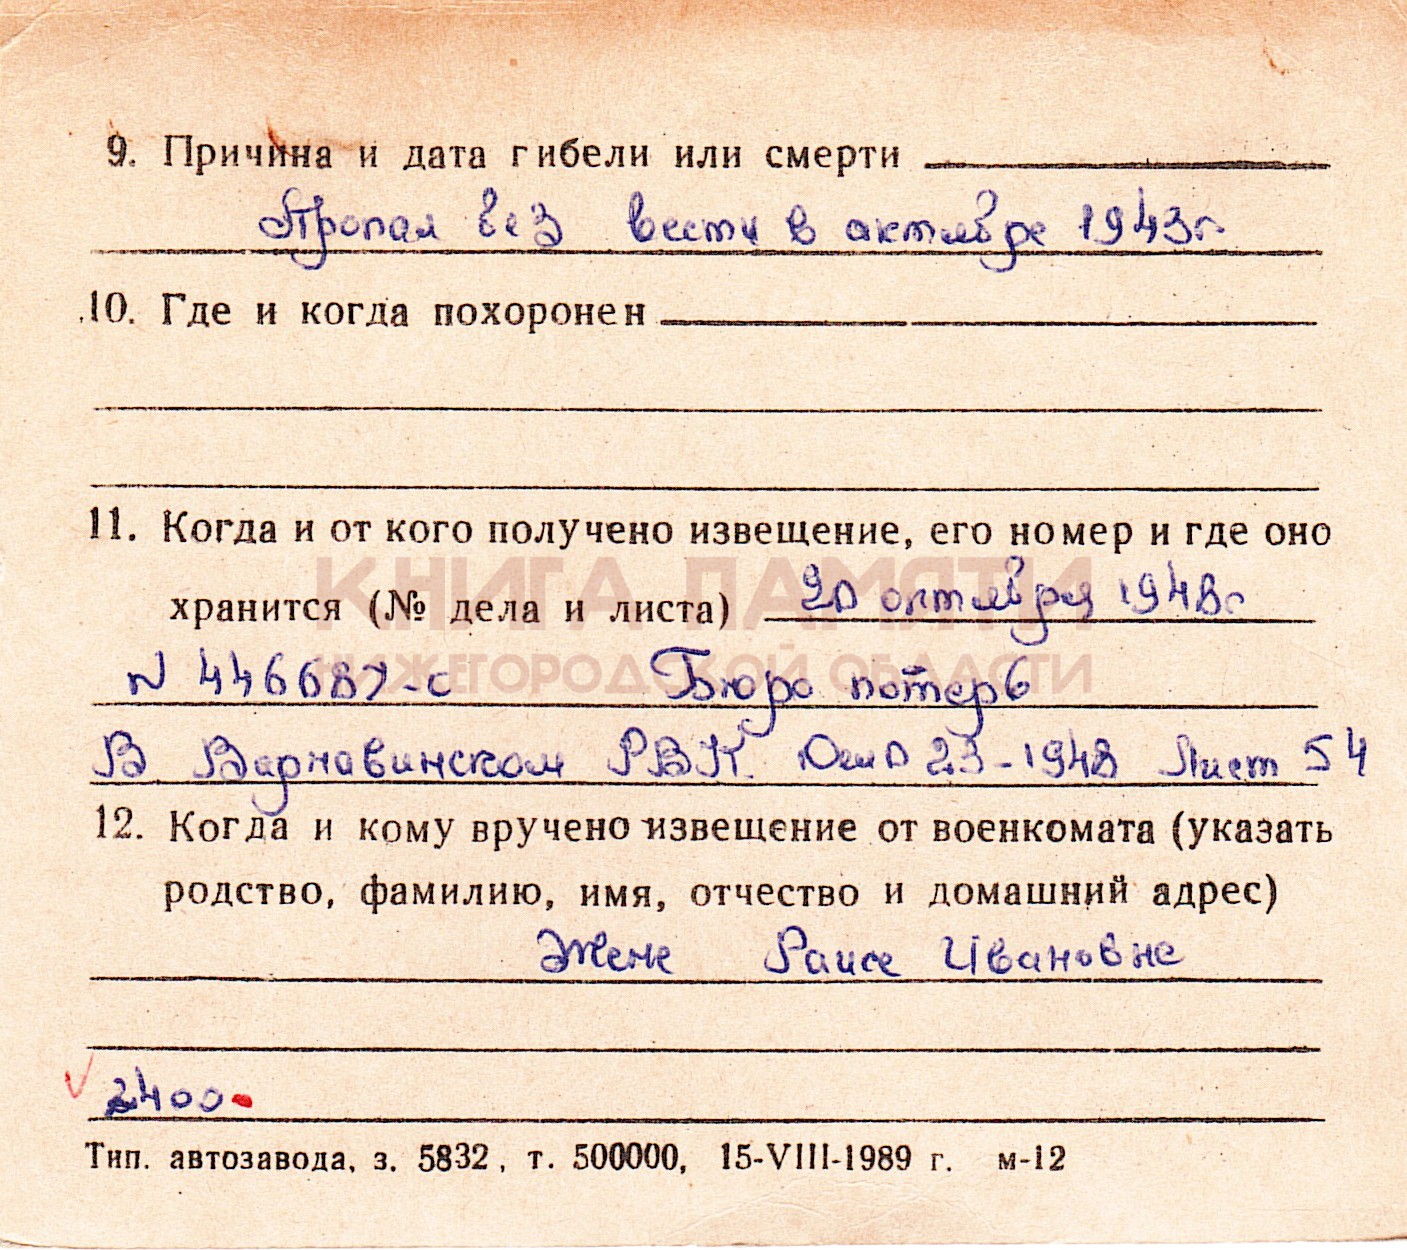 9. Причина и дата гибели или смерти
Пропал без вести в октябре 1943г.
10. Где и когда похоронен
11. Когда и от кого получено извещение, его номер и где оно
КНИГА ПАМЯТИ
хранится (№ дела и листа) 20 октября 1948г
НИЖЕГОРОДСКОЙ ОБЛАСТИ
N 446687-с Бюро потерь
В Варнавинском РВК. Дело 23-1948 Лист 54
12. Когда и кому вручено извещение от военкомата (указать
родство, фамилию, имя, отчество и домашний адрес)
Жене Раисе Ивановне
2400
Тип. автозавода, з. 5832, т. 500000, 15-VIII-1989 г. м-12